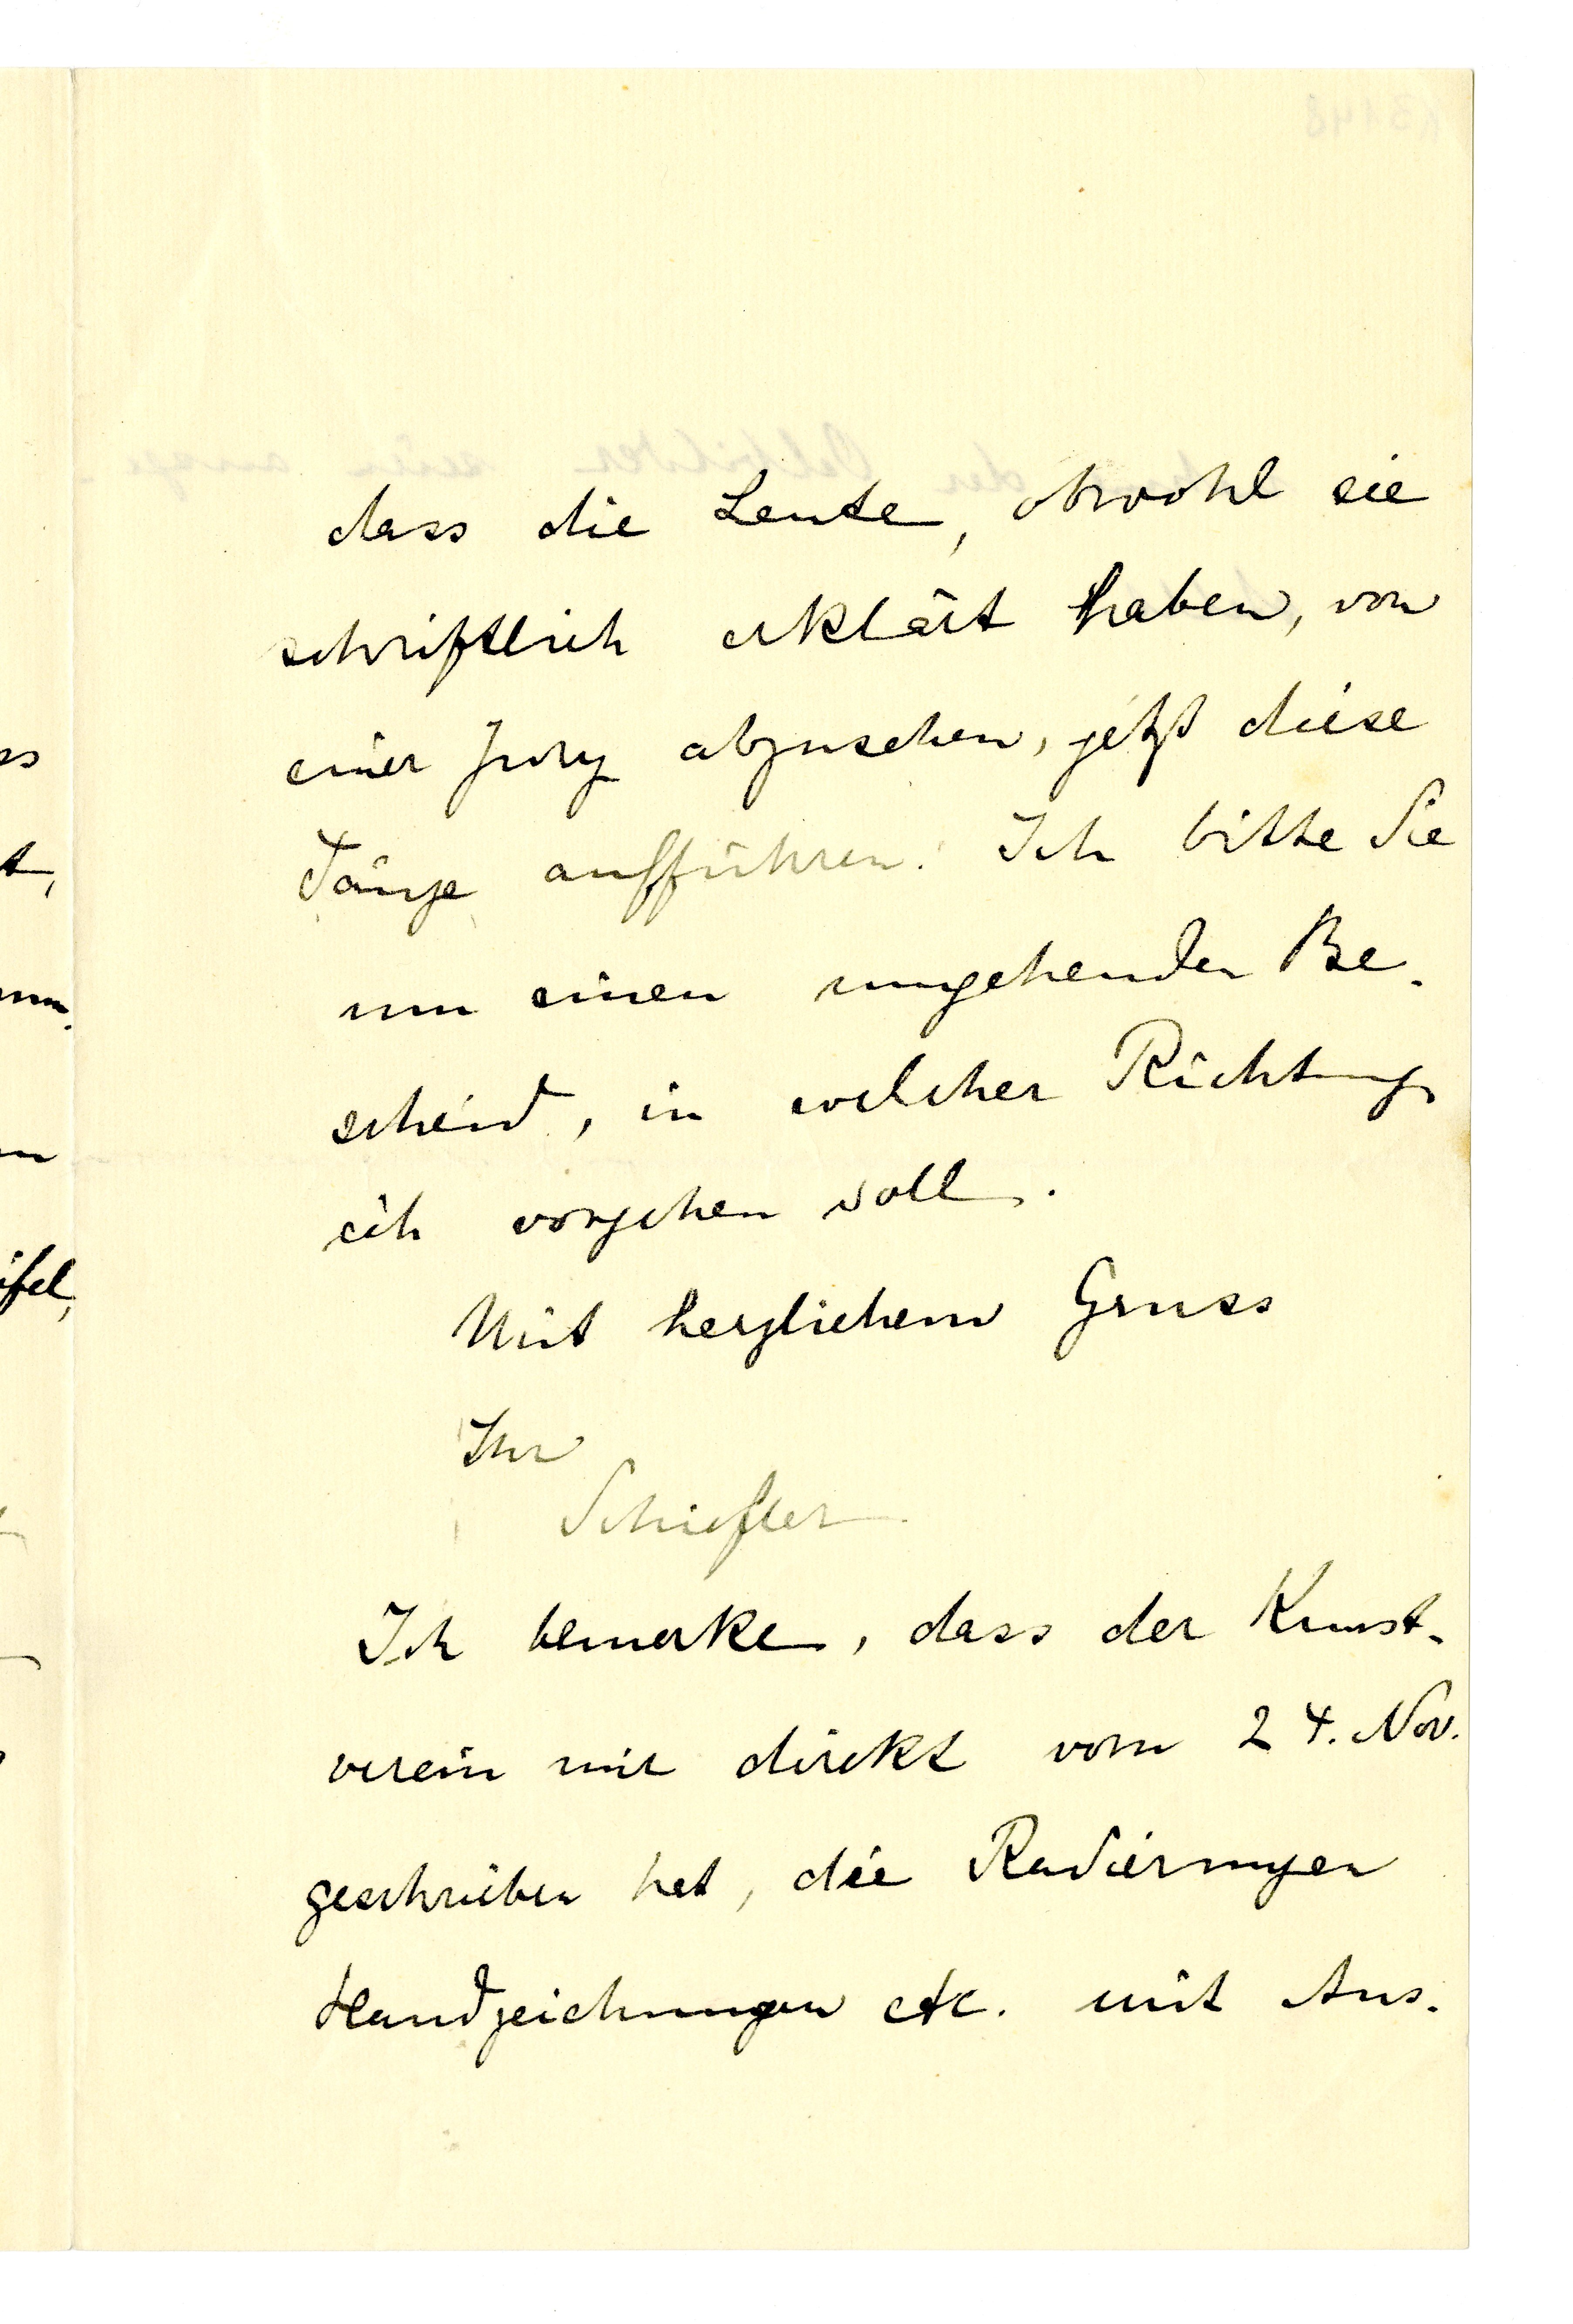 dass die Leute, obwohl sie
schriftlich erklärt haben, von
einer Jury abzusehen, jetzt diese
Tänze aufführen! Ich bitte Sie
um einen umgehenden Be-
scheid, in welcher Richtung
ich vorgehen soll.
Mit herzlichem Gruss
Ihr
Schiefler
Ich bemerke, dass der Kunst-
verein mir direkt vom 24. Nov.
geschrieben hat, die Radierungen
Handzeichnungen etc. mit Aus-